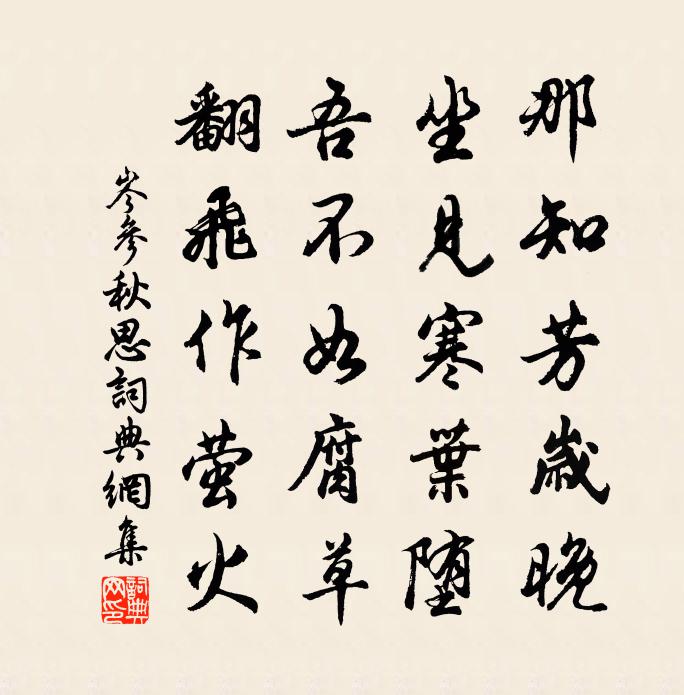 那知芳歲晚
坐見寒葉墮
吾不如腐草
翻飛作萤火
岑參秋思詞典網集
詞典網印